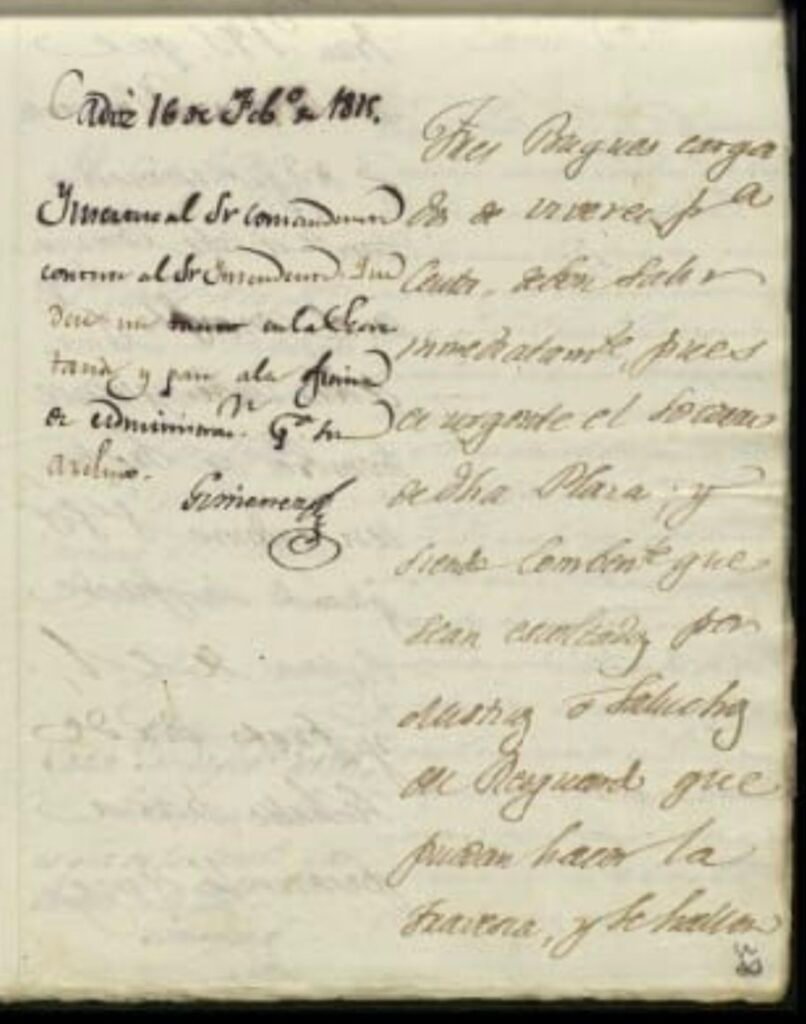 Cadiz 16 de Feb.º de 1815.
al Sr Comandante
al Sr Intendente
en la Secre
taria y pase a la oficina
de Administrac.ⁿ G.ˡ
archivo.
Gimenez
Tres Buques carga
dos de viveres p.ª
Ceuta, deben Salir
inmediatam.te, pues
es urgente el Socorro
de dha Plaza, y
siendo Comben.te que
sean escoltados por
ó Faluchos
de Resguardo que
puedan hacer la
travesia, y se hallen